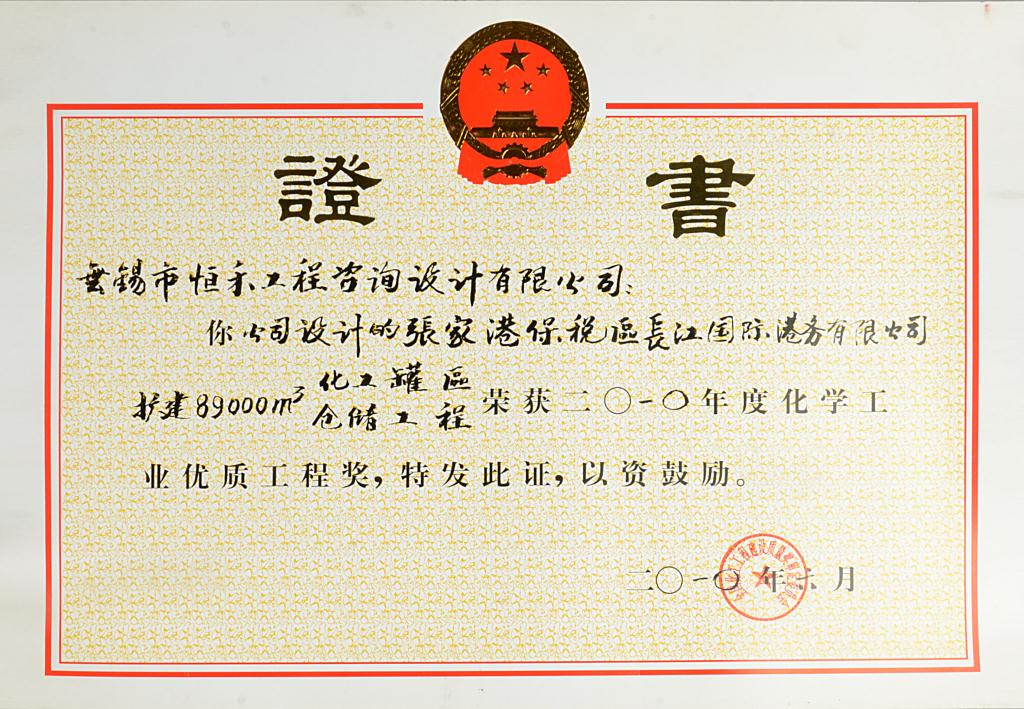 證書
無錫市恒禾工程咨询设计有限公司:
你公司设计的張家港保税區長江国际港务有限公司
扩建89000m³化工罐區仓储工程荣获二〇一〇年度化学工
业优质工程奖,特发此证,以资鼓励。
二〇一〇年六月